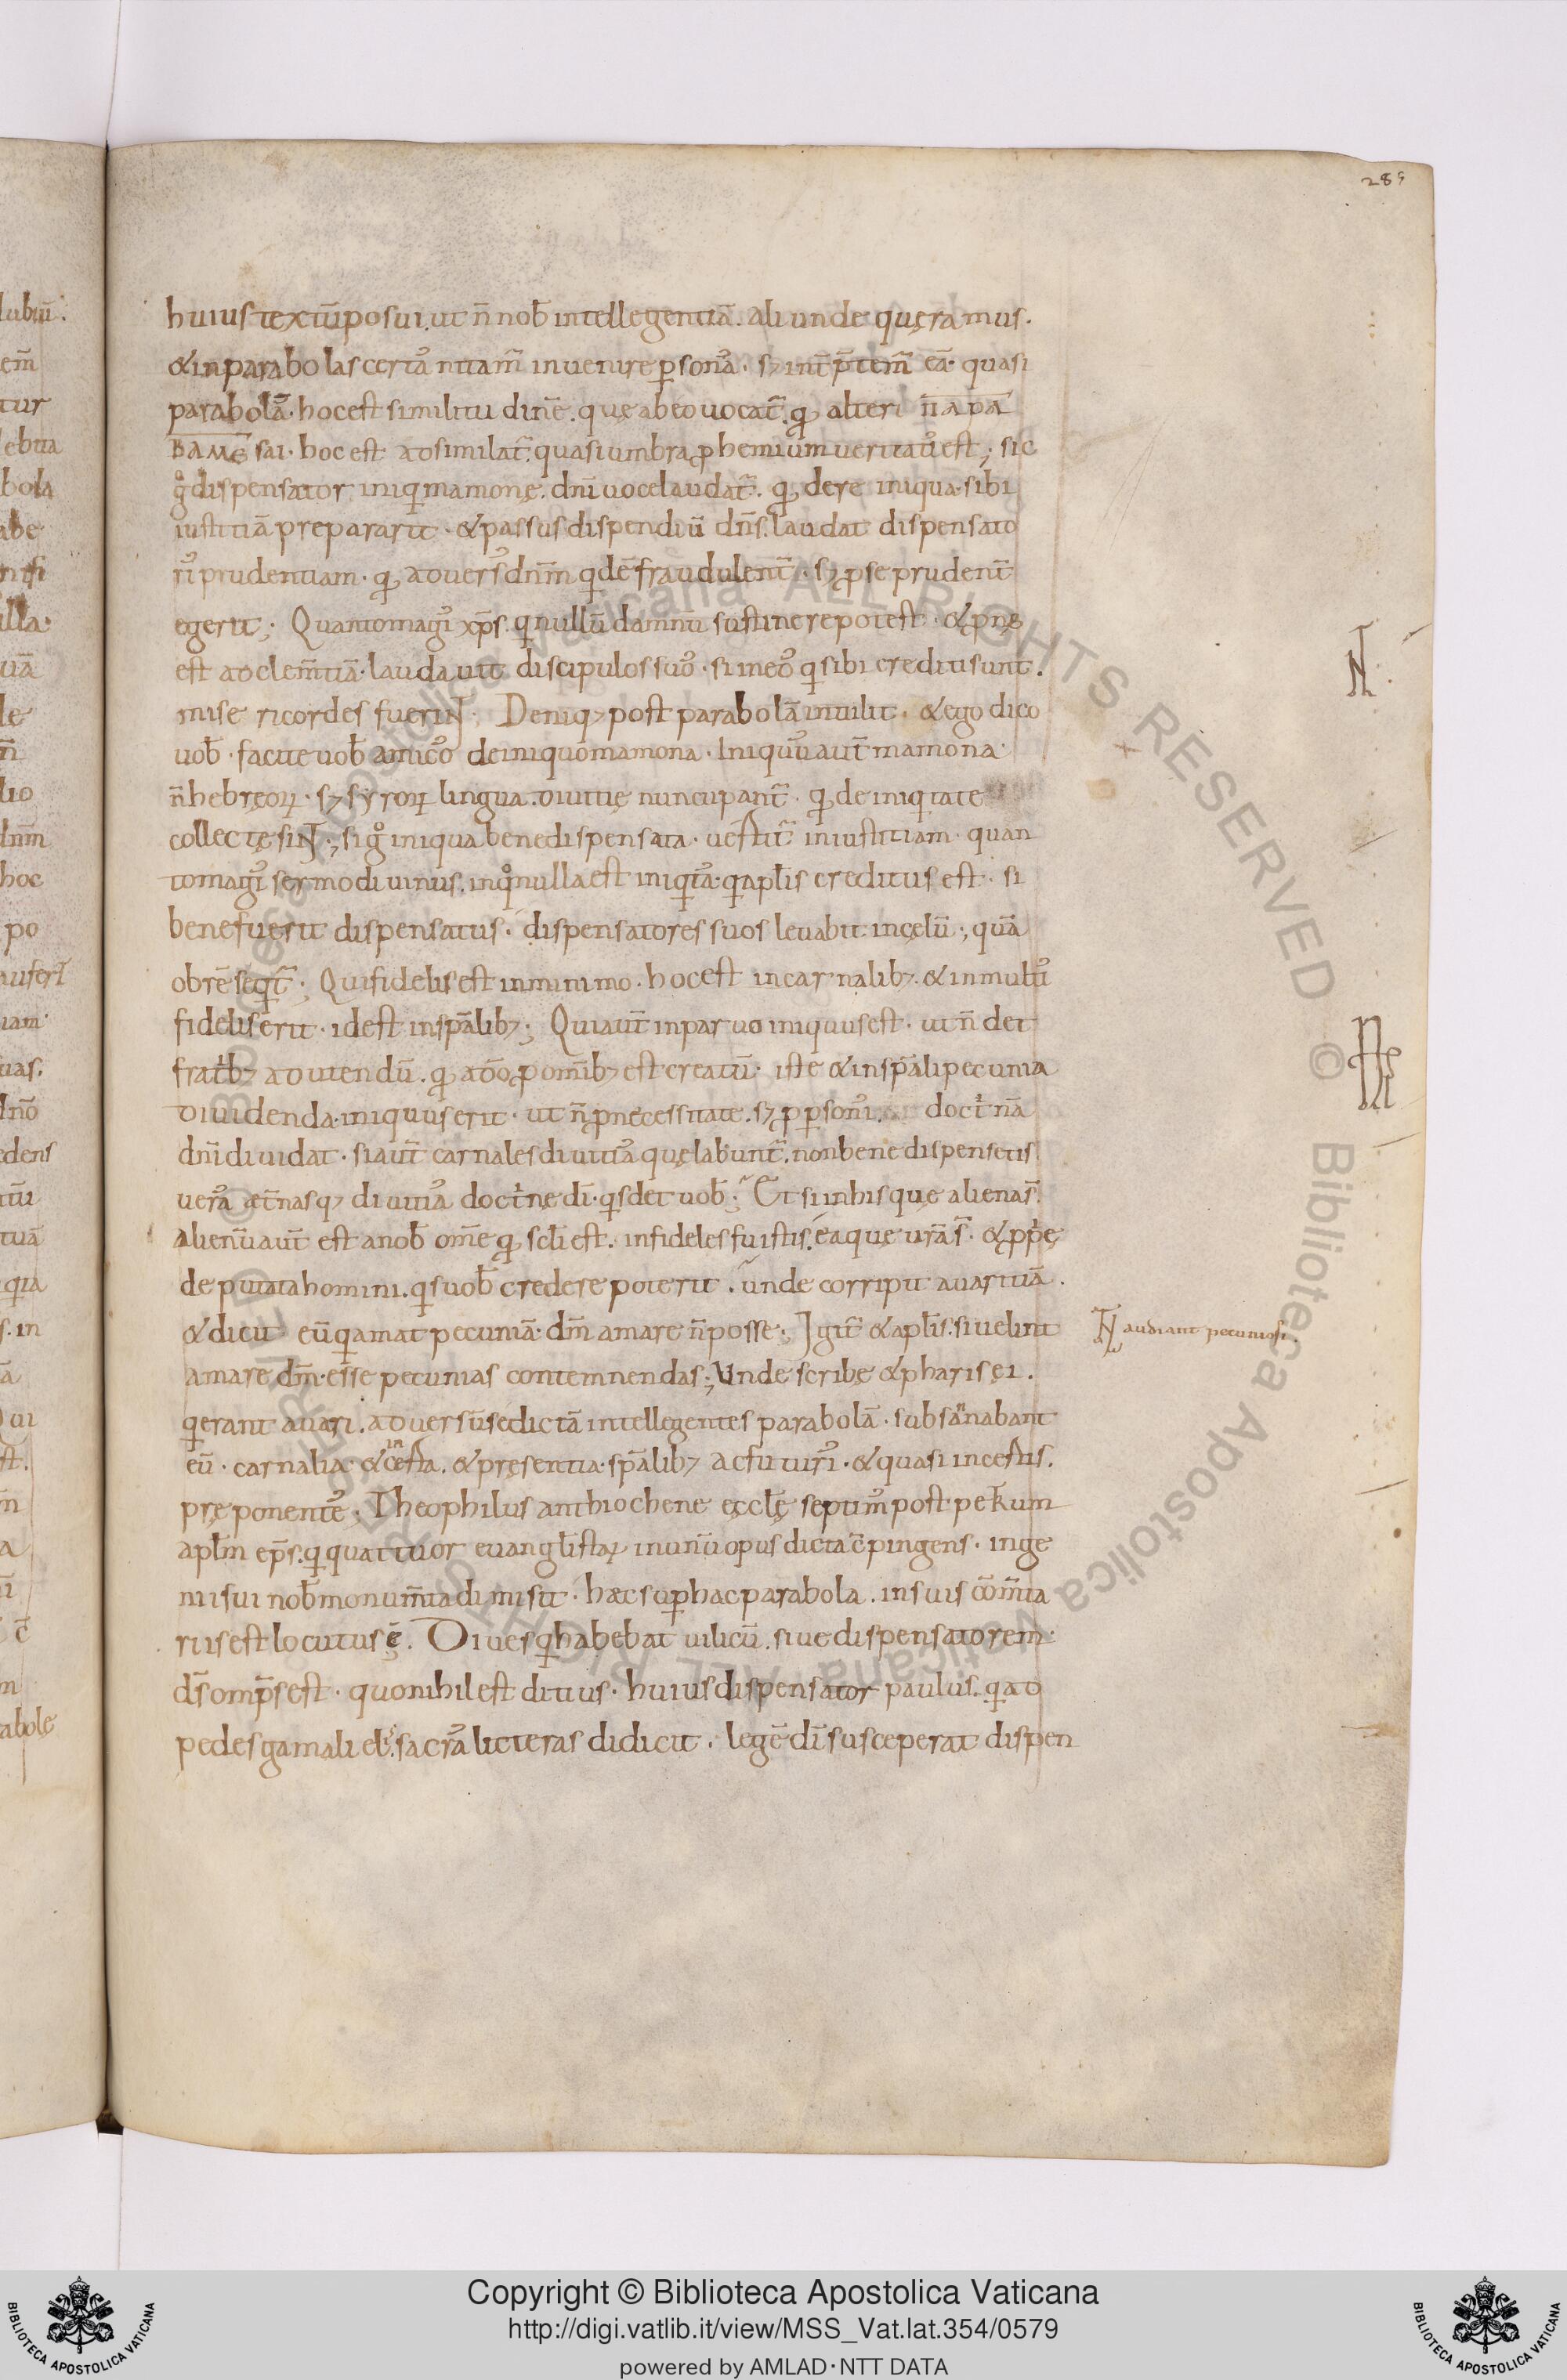 285
huius textū posui. ut n̄ nob̄ intellegentiā. aliunde quęramus.
& in parabolas certā nitam̄ inuenire ꝑsonā. sꝫ int̄p̄tem̄ eā. quasi
parabolā. hoc est similitudinē. quę ab eo uocat̄. qđ alteri ΠΑΡΑ
ΒΑΜΕ sai. hoc est adsimilat̄. quasi umbra ꝓhemium ueritatis est; sic
g̊ dispensator iniqi mamonę. dn̄i uoce laudat̄. qđ de re iniqua sibi
iustitiā prepararit. & passus dispendiū dn̄s. laudat dispensato
ris prudentiam. qđ aduersus dn̄m qidē fraudulent̄. sꝫ ꝓ se prudent̄
egerit; Quanto magis xp̄s. qi nullū damnū sustinere potest. & ꝓnꝰ
est ad clem̄tiā. laudauit discipulos suos. si in eos qi sibi credituri sunt.
misericordes fueriNT; Deniqꝫ post parabolā intulit. & ego dico
uob̄. facite uob̄ amicos de iniquo mamona. Iniquus aut̄ mamona.
n̄ hebręoꝝ. sꝫ syroꝝ lingua. diuitię nuncupant̄. qđ de iniqitate
collectę siNT; si g̊ iniqua bene dispensata. uertit̄ in iustitiam. quan
to magis sermo diuinus. in qo nulla est iniqitas. qi apl̄is creditus est. si
bene fuerit dispensatus. dispensatores suos leuabit in cęlū; quā
ob rē seqit̄; Qui fidelis est in minimo. hoc est in carnalibꝫ. & in multis
fidelis erit. id est in sp̄alibꝫ; Qui aut̄ in paruo iniquus est. ut n̄ det
fratribꝫ ad utendū. qđ a dō ꝓ omn̄ibꝫ est creatū. iste & in sp̄ali pecunia
diuidenda. iniquus erit. ut n̄ ꝓ necessitate. sꝫ ꝓ ꝑsonis. doctrinā
dn̄i diuidat. si aut̄ carnales diuitias quę labunt̄. non bene dispensetis.
ueras ęt̄nasqꝫ diuitias doctrinę dī. qis det uob̄; Et si in his quę aliena s̄.
alienū aut̄ est a nob̄ om̄e qđ scl̄i est. infideles fuistis. ea quę ur̄a s̄. & ꝓprię
deputata homini. qis uob̄ credere poterit. unde corripit auaritiā.
& dicit eū qi amat pecuniā. dm̄ amare n̄ posse; Igit̄ & apl̄is. si uelint
amare dm̄. esse pecunias contemnendas; Unde scribę & pharisęi.
qi erant auari. aduersū se dictā intellegentes parabolā. subsannabant
eū. carnalia & certa. & pręsentia. sp̄alibꝫ ac futuris. & quasi incertis.
pręponentes. Theophilus anthiochene ęcclę̄ septimus post petrum
apl̄m ep̄s. qi quattuor euangl̄istaꝝ in unū opus dicta c̄pingens. inge
nii sui nob̄ monum̄ta dimisit. hæc suꝑ hac parabola. in suis com̄enta
riis est locutus ę̄. Diues qi habebat uilicū. siue dispensatorem.
ds̄ omp̄s est. quo nihil est ditius. huius dispensator paulus. qi ad
pedes gamalielis. sacras licteras didicit. legē dī susceperat dispen
N audiant pecuniosi.
Copyright © Biblioteca Apostolica Vaticana
http://digi.vatlib.it/view/MSS_Vat.lat.354/0579
powered by AMLAD·NTT DATA